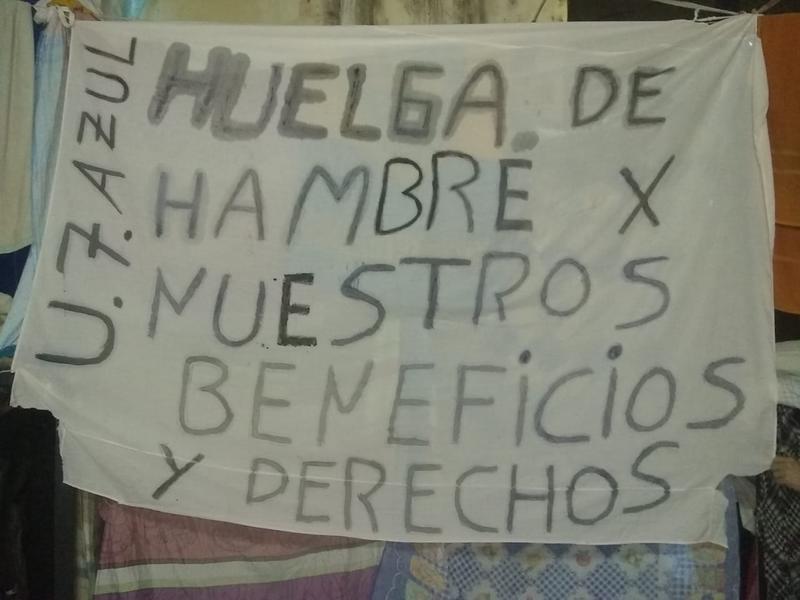 U.7.AZUL
HUELGA. DE
HAMBRE X
NUESTROS
BENEFICIOS
Y DERECHOS